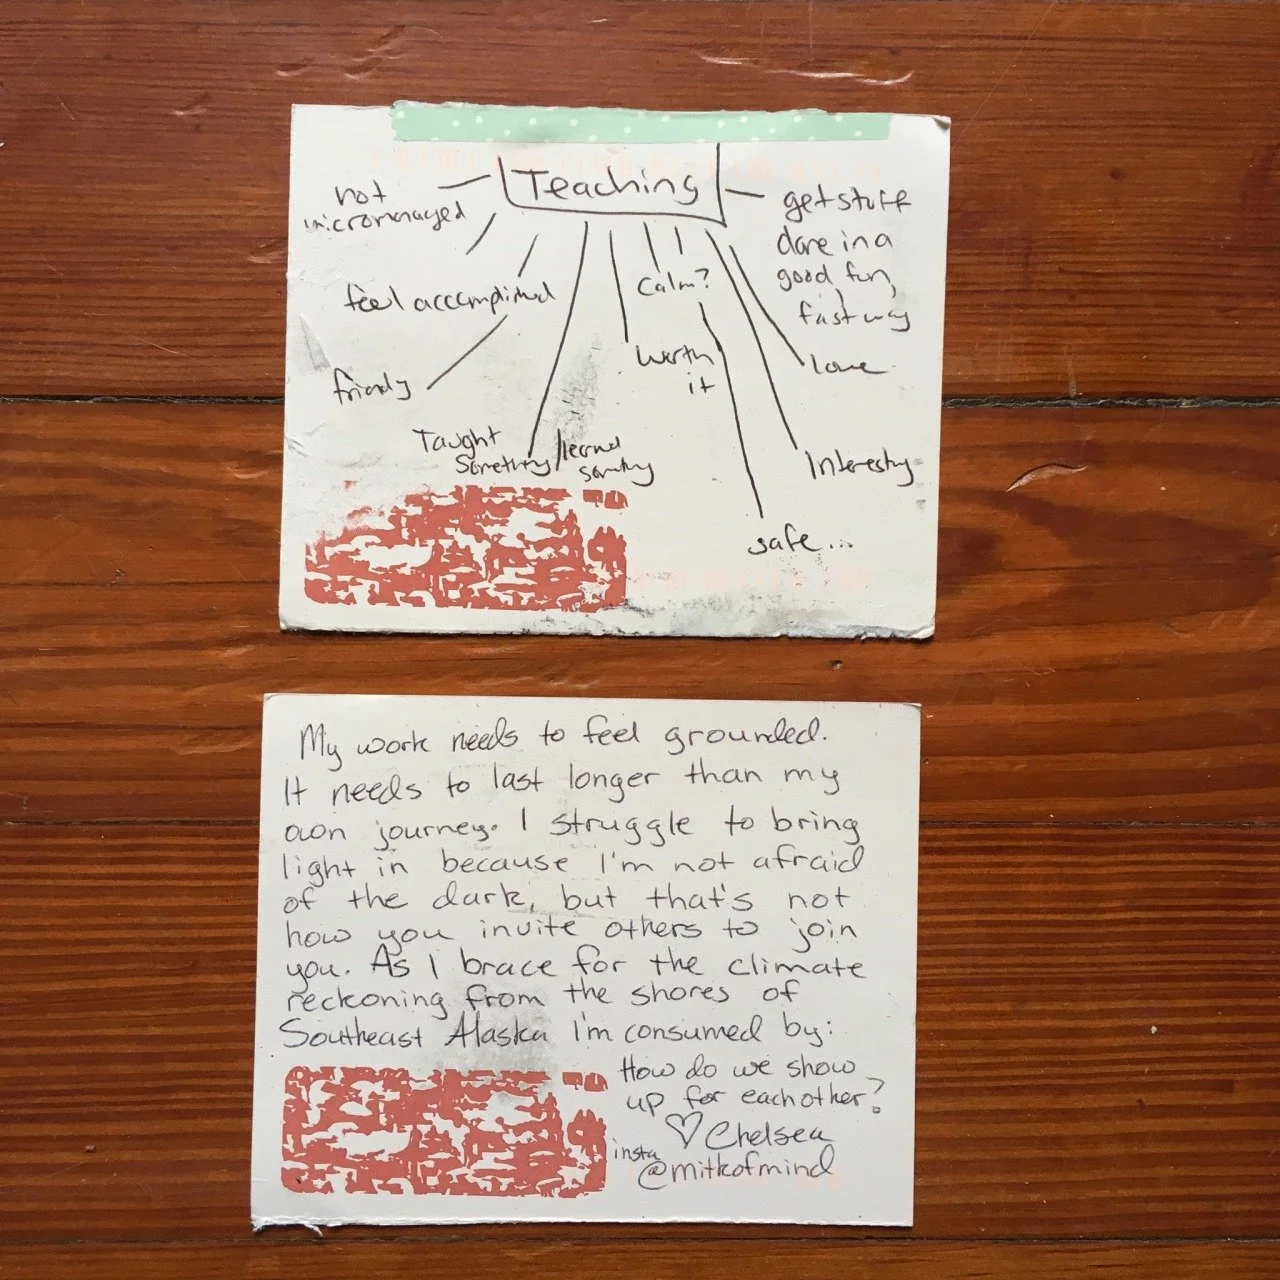 Teaching
not
micromanaged
get stuff
done in a
good fun,
fast way
feel accomplished
Calm?
worth
it
love
friendly
Taught
Something / learned
something
Interesting
safe...
My work needs to feel grounded.
It needs to last longer than my
own journey. I struggle to bring
light in because I'm not afraid
of the dark, but that's not
how you invite others to join
you. As I brace for the climate
reckoning from the shores of
Southeast Alaska I'm consumed by:
How do we show
up for each other?
♡ Chelsea
insta
@mitkofmind